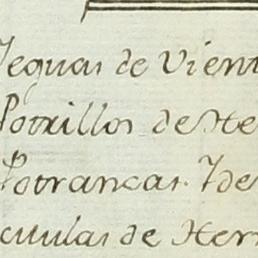 Yeguas de Vient
Potrillos de He
Potrancas. Yde
culas de Her